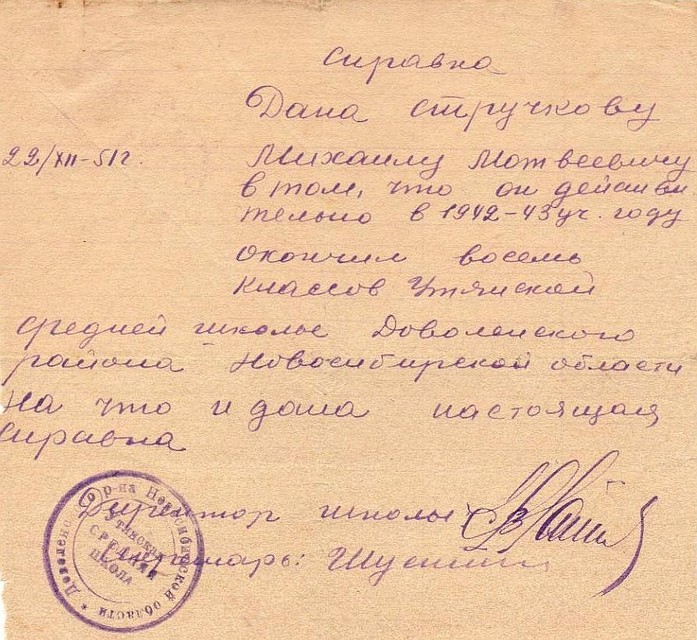 Справка
Дана стручкову
22/XII-51г.
Михаилу Матвеевичу
в том, что он действи
тельно в 1942-43 уч. году
окончил восемь
классов Утянской
средней школы Доволенского
района Новосибирской области
На что и дана настоящая
справка
Директор школы
Секретарь:
Доволенского р-на Новосибирской области
Утянская
средняя
школа